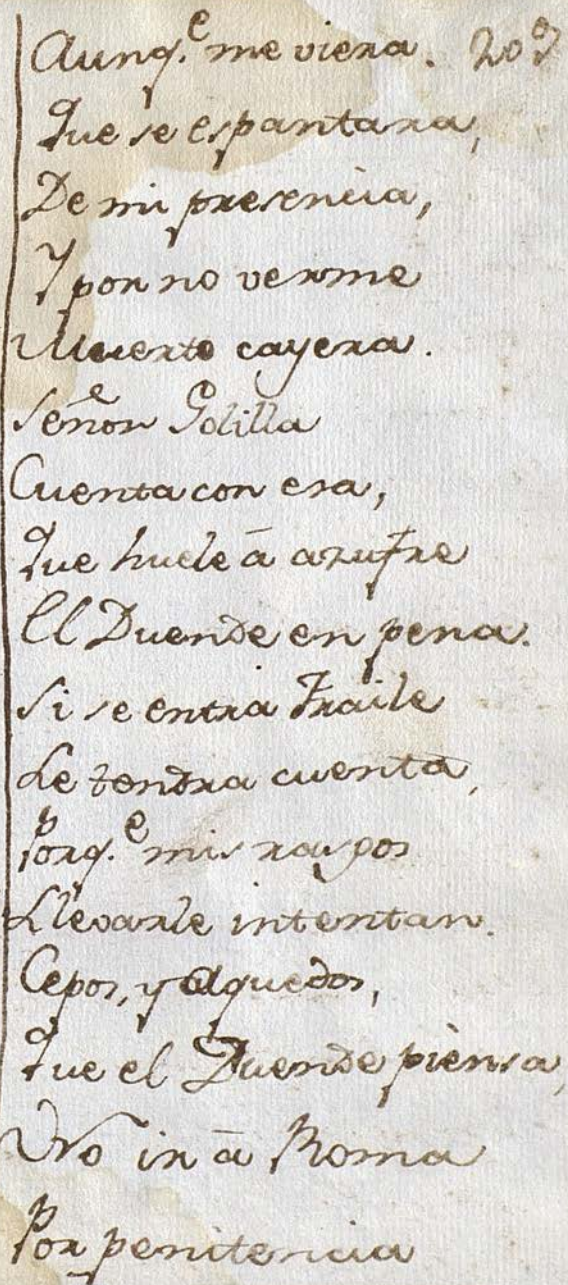 Aunq.e me viera. 209
Que se espantara,
De mi presencia,
Y por no verme
Muerto cayera.
Señor Golilla
Cuenta con esa,
Que huele â azufre
El Duende en pena.
Si se entra Fraile
Le tendra cuenta,
Porq.e mis raspos
Llevarle intentan.
Cepos, y quedos,
Que el Duende piensa,
No ir â Roma
Por penitencia